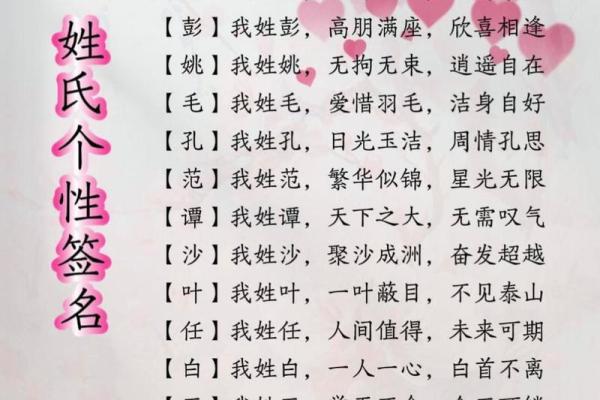 姓氏个性签名
【彭】我姓彭，高朋满座，欣喜相逢
【姚】我姓姚，无拘无束，逍遥自在
【毛】我姓毛，爱惜羽毛，洁身自好
【孔】我姓孔，日光玉洁，周情孔思
【范】我姓范，繁华似锦，星光无限
【谭】我姓谭，天下之大，无需叹气
【沙】我姓沙，聚沙成洲，奋发超越
【叶】我姓叶，一叶蔽目，不见泰山
【任】我姓任，人间值得，未来可期
【白】我姓白，一人一心，白首不离